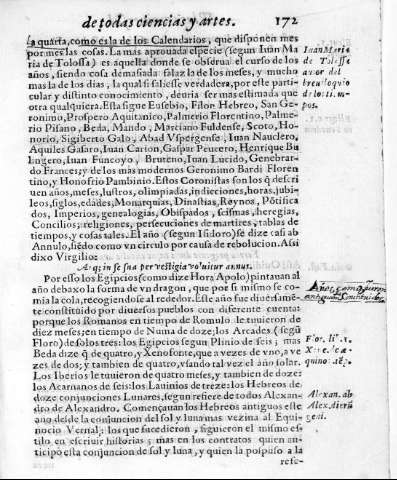 de todas ciencias y artes. 172
La quarta, como es la de los Calendarios, que disponen mes
por mes las cosas. La mas aprouada especie (segun Iuan Ma
ria de Tolossa) es aquella donde se obserua el curso de los
años, siendo cosa demasiada falaz la de los meses, y mucho
mas la de los dias, la qual si fuesse verdadera, por este parti
cular y distinto conocimiento, deuria ser mas estimada que
otra qualquiera. Esta sigue Eusebio, Filon Hebreo, San Ge
ronimo, Prospero Aquitanico, Palmerio Florentino, Palme
rio Pisano, Beda, Mando, Marciano Fuldense, Scoto, Ho-
norio, Sigiberto Galo, Abad Vspergense, Iuan Nauclero,
Aquiles Gasaro, Iuan Carion, Gaspar Peucero, Henrique Bu
lingero, Iuan Funcoyo, Bruteno, Iuan Lucido, Genebrar-
do Frances; y de los mas modernos Geronimo Bardi Floren
tino, y Honofrio Pambinio. Estos Coronistas son los q̃ descri
uen años, meses, lustros, olimpiadas, indieciones, horas, jubi-
leos, siglos, edades, Monarquias, Dinastias, Reynos, Põtifica
dos, Imperios, genealogias, Obispados, scismas, heregias,
Concilios, religiones, persecuciones de martires, tablas de
tiempos, y cosas tales. El año (segun Isidoro) se dize casi ab
Annulo, siẽdo como vn circulo por causa de rebolucion. Assi
dixo Virgilio:
Atq; in se sua per vestigia voluitur annus.
Por esso los Egipcios (como dize Hora Apolo) pintauan al
año debaxo la forma de vn dragon, que por si mismo se co-
mia la cola, recogiendose al rededor. Este año fue diuersamẽ-
te constituido por diuersos pueblos con diferente cuenta:
porque los Romanos en tiempo de Romulo le tuuieron de
diez meses; en tiempo de Numa de doze; los Arcades (segũ
Floro) de solos tres: los Egipcios segun Plinio de seis; mas
Beda dize q̃ de quatro, y Xenofonte, que a vezes de vno, a ve
zes de dos; y tambien de quatro, vsando tal vez el año solar.
Los Iberios le tuuieron de quatro meses, y tambien de doze:
los Acarnanos de seis: los Lauinios de treze: los Hebreos de
doze conjunciones Lunares, segun refiere de todos Alexan-
dro de Alexandro. Començauan los Hebreos antiguos este
año desde la conjuncion del sol y luna mas vezina al Equi-
nocio Vernal; los que sucedieron, siguieron el mismo es-
tilo, en escriuir historias; mas en los contratos quien an-
ticipò esta conjuncion de sol y luna, y quien la pospuso a la
rese-
Iuan Maria
de Tolossa
autor del
breuiloquio
de los tiem-
pos.
Año, como
Flor. li. 1.
Xen. de æ-
quino.
Alexan. ab
Alex. dierũ
geni.